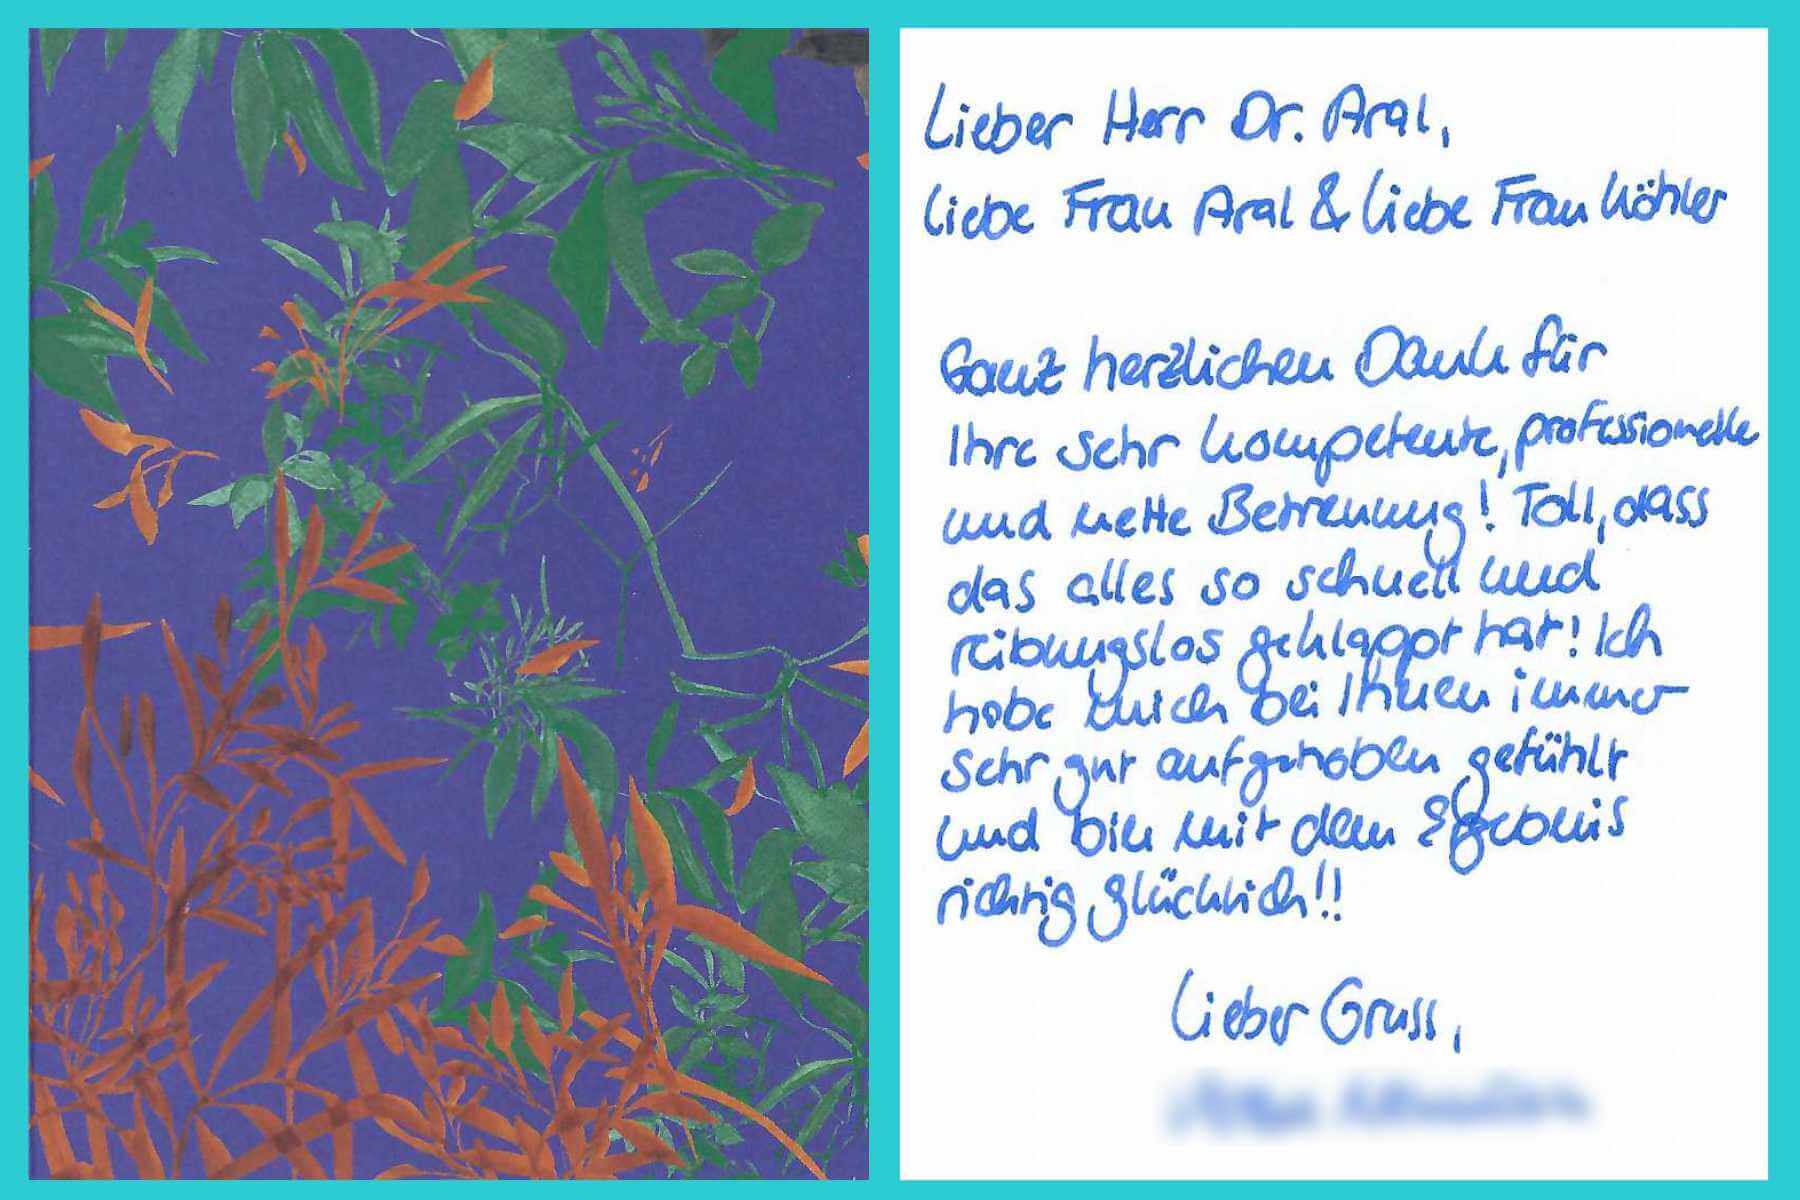 Lieber Herr Dr. Aral,
liebe Frau Aral & liebe Frau Köhler
Ganz herzlichen Dank für
Ihre sehr kompetente, professionelle
und nette Betreuung! Toll, dass
das alles so schnell und
reibungslos geklappt hat! Ich
habe mich bei Ihnen immer
sehr gut aufgehoben gefühlt
und bin mit dem Ergebnis
richtig glücklich!!
Lieber Gruss,